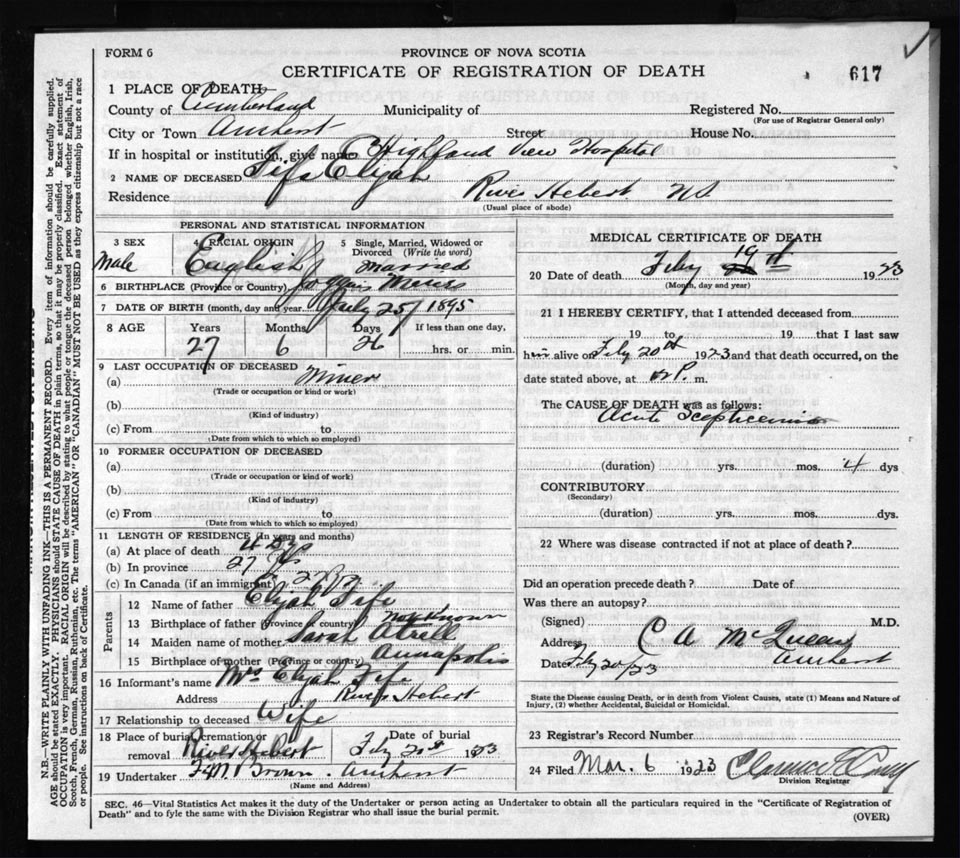 FORM 6
PROVINCE OF NOVA SCOTIA
CERTIFICATE OF REGISTRATION OF DEATH
617
1 PLACE OF DEATH
County of Cumberland Municipality of Registered No.
(For use of Registrar General only)
City or Town Amherst Street House No.
If in hospital or institution, give name Highland View Hospital
2 NAME OF DECEASED Fife Elijah
Residence River Hebert NS
(Usual place of abode)
PERSONAL AND STATISTICAL INFORMATION
3 SEX Male
4 RACIAL ORIGIN English
5 Single, Married, Widowed or Divorced (Write the word) Married
6 BIRTHPLACE (Province or Country) Joggins Mines
7 DATE OF BIRTH (month, day and year) July 25 1895
8 AGE Years Months Days If less than one day,
27 6 26 hrs. or min.
9 LAST OCCUPATION OF DECEASED
(a) Miner
(Trade or occupation or kind or work)
(b)
(Kind of industry)
(c) From to
(Date from which to which so employed)
10 FORMER OCCUPATION OF DECEASED
(a)
(Trade or occupation or kind of work)
(b)
(Kind of industry)
(c) From to
(Date from which to which so employed)
11 LENGTH OF RESIDENCE (In years and months)
(a) At place of death 4
(b) In province 27
(c) In Canada (if an immigrant) 27
Parents
12 Name of father Elijah Fife
13 Birthplace of father (Province or country) not known
14 Maiden name of mother Sarah Atrell
15 Birthplace of mother (Province or country) Annapolis
16 Informant's name Mrs Elijah Fife
Address River Hebert
17 Relationship to deceased Wife
18 Place of burial, cremation or removal River Hebert
Date of burial Feby 1923
19 Undertaker Brown. Amherst
(Name and Address)
MEDICAL CERTIFICATE OF DEATH
20 Date of death Feby 19th 1923
(Month, day and year)
21 I HEREBY CERTIFY, that I attended deceased from
19 to 19 that I last saw
him alive on Feby 20th 1923 and that death occurred, on the
date stated above, at P. m.
The CAUSE OF DEATH was as follows:
Acute Scepticemia
(duration) yrs. mos. 4 dys
CONTRIBUTORY
(Secondary)
(duration) yrs. mos. dys.
22 Where was disease contracted if not at place of death?
Did an operation precede death? Date of
Was there an autopsy?
(Signed) C A McQueen M.D.
Address Amherst
Date Feby 20/23
State the Disease causing Death, or in death from Violent Causes, state (1) Means and Nature of
Injury, (2) whether Accidental, Suicidal or Homicidal.
23 Registrar's Record Number
24 Filed Mar. 6 1923 Clarence
Division Registrar
SEC. 46—Vital Statistics Act makes it the duty of the Undertaker or person acting as Undertaker to obtain all the particulars required in the "Certificate of Registration of
Death" and to fyle the same with the Division Registrar who shall issue the burial permit.
(OVER)
N.B.—WRITE PLAINLY WITH UNFADING INK—THIS IS A PERMANENT RECORD. Every item of information should be carefully supplied.
AGE should be stated EXACTLY. PHYSICIANS should STATE CAUSE OF DEATH in plain terms, so that it may be properly classified. Exact statement of
OCCUPATION is very important. RACIAL ORIGIN will be described by stating to what people or tongue the deceased person belonged, whether English, Irish,
Scotch, French, German, Russian, Ruthenian, etc. The terms "AMERICAN" OR "CANADIAN" MUST NOT BE USED as they express citizenship but not a race
or people. See instructions on back of Certificate.